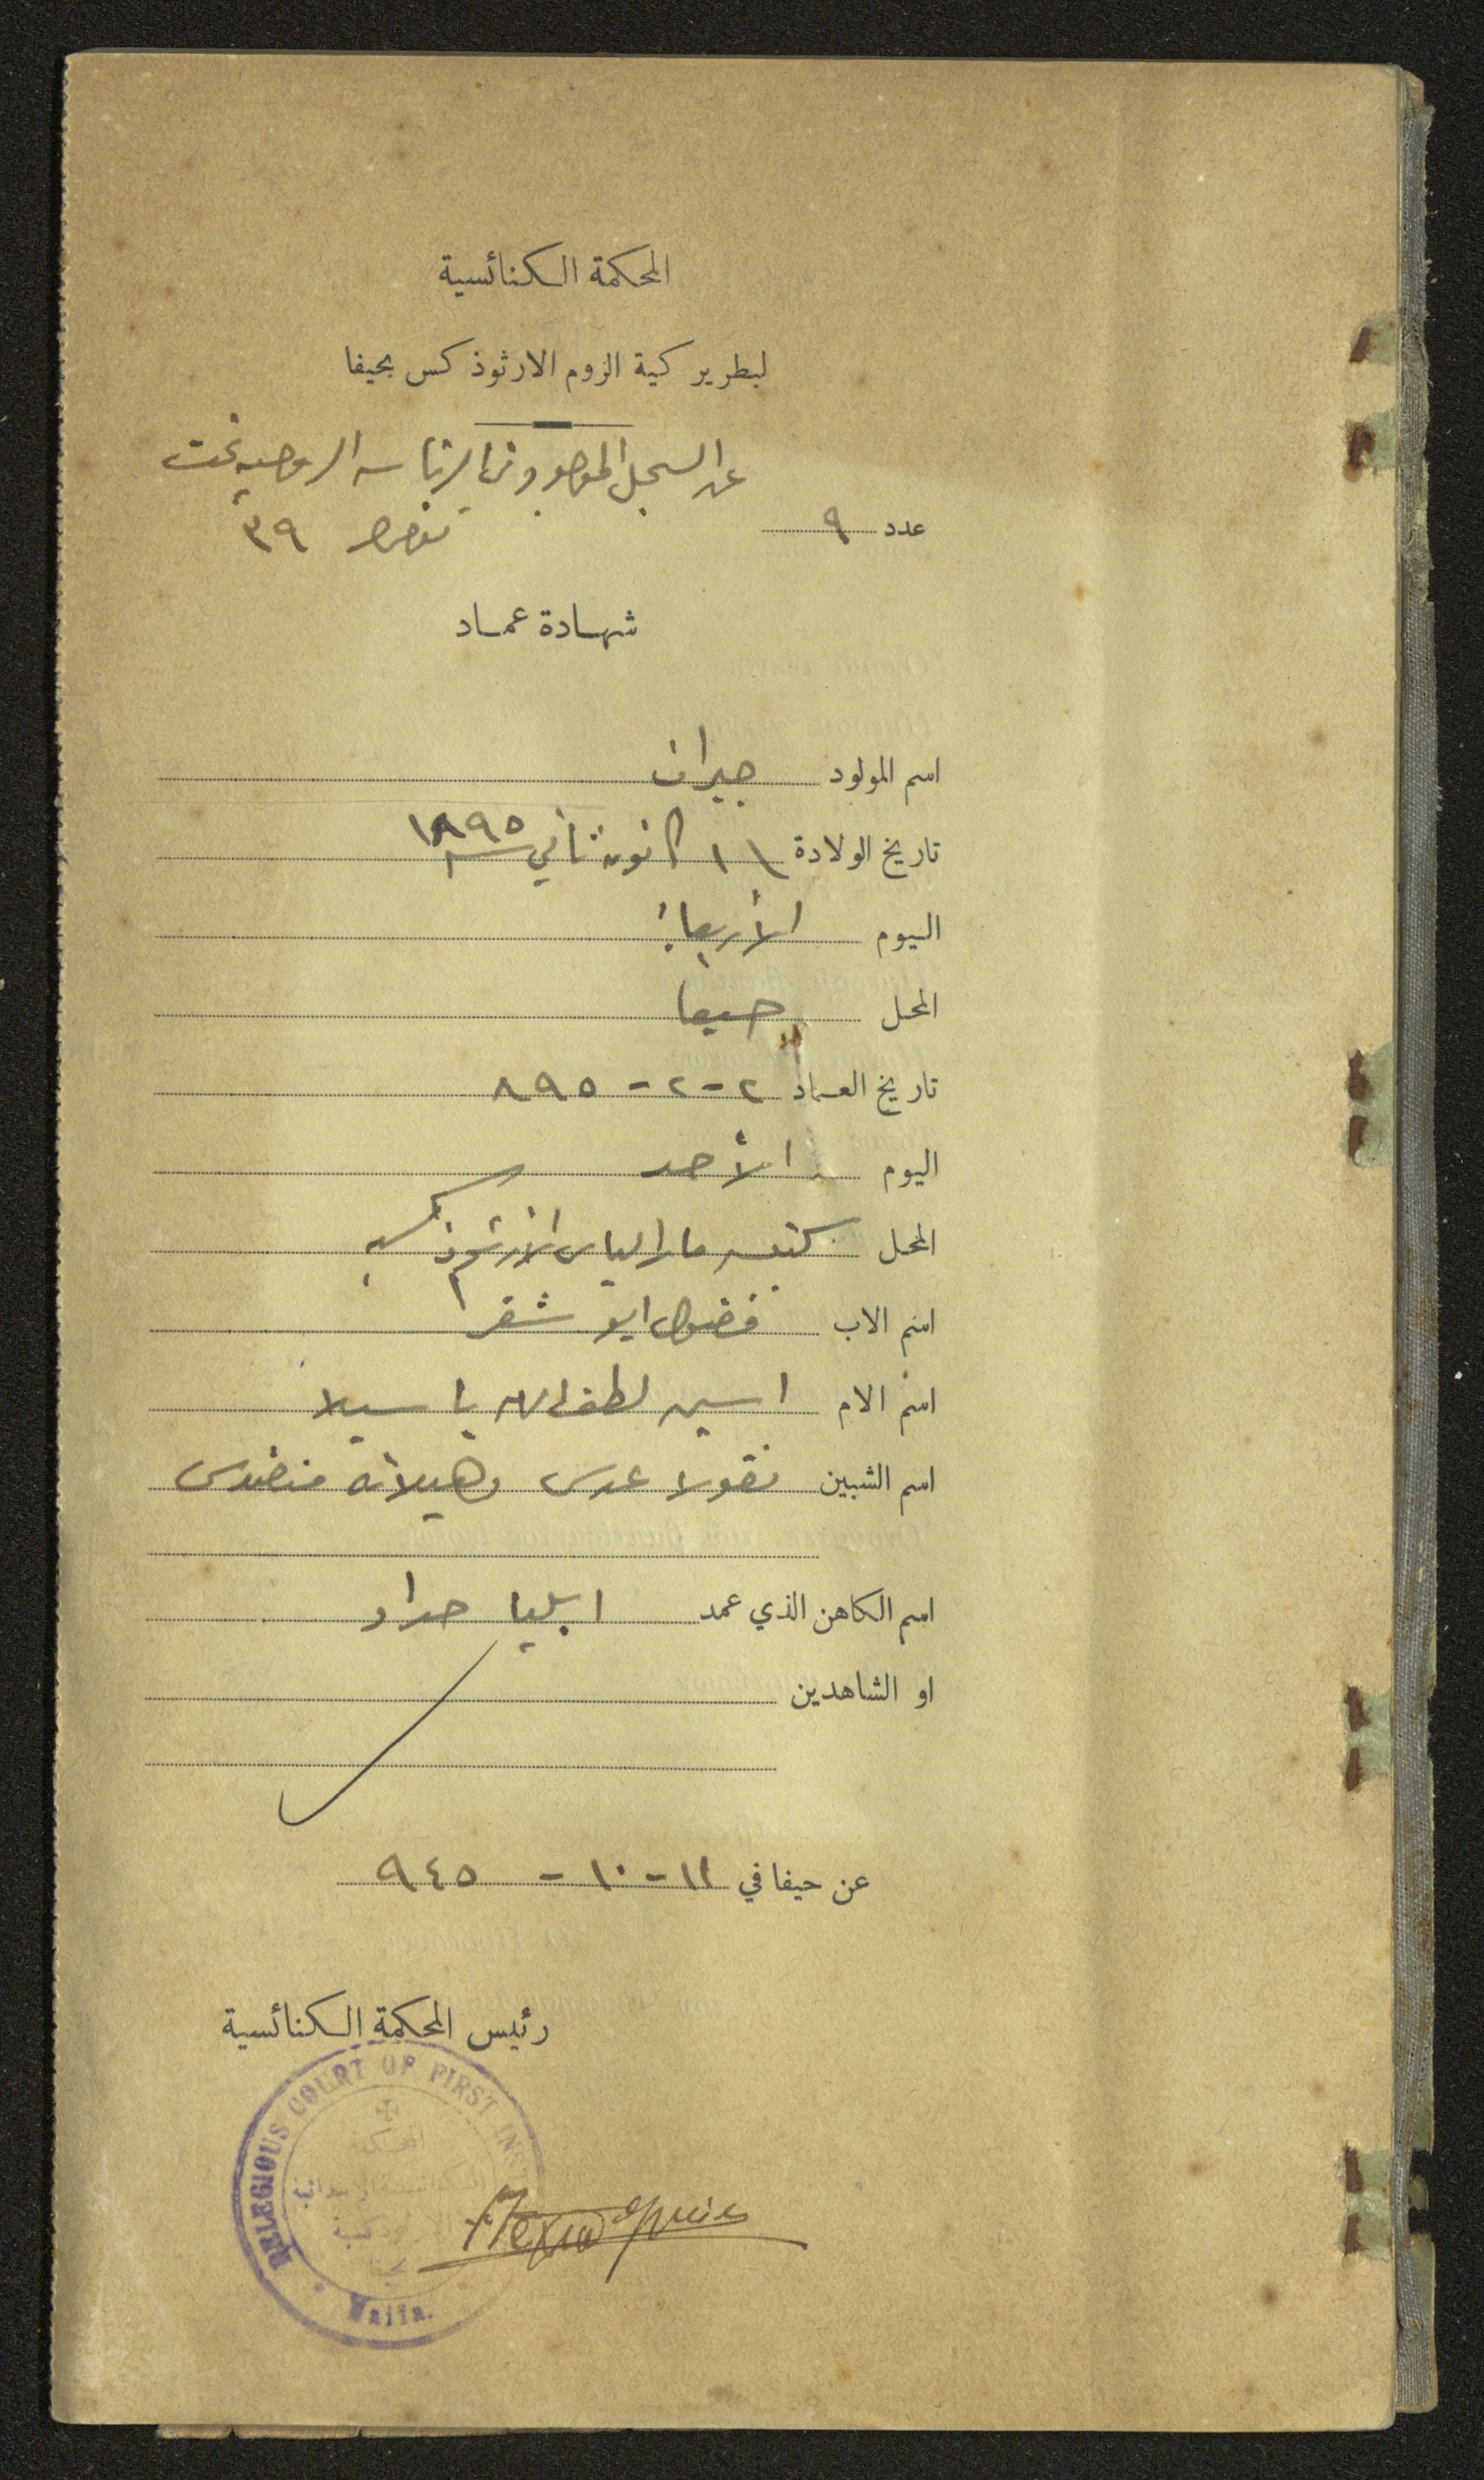 المحكمة الكنائسية
لبطريركية الروم الارثوذكس بحيفا
عن السجل الموجود في الرئاسه الروحيه تحت
عدد ٩
نمره ٣٩
شهادة عماد
اسم المولود جبران
تاريخ الولادة ١١ كانون ثاني سنة ١٨٩٥
اليوم الأربعاء
المحل حيفا
تاريخ العماد ٢-٢-٨٩٥
اليوم الأحد
المحل كنيسة مار الياس الارثوذكسيه
اسم الاب فضول ابو شقر
اسم الام لطف الله باسيلا
اسم الشبين نقولا عدس وهيلانه
اسم الكاهن الذي عمد ايليا حداد
او الشاهدين
عن حيفا في ١٢-١٠-٩٤٥
رئيس المحكمة الكنائسية
RELEGIOUS COURT OF FIRST INST
المحكمة
الكنائسية الابتدائية
Haifa.